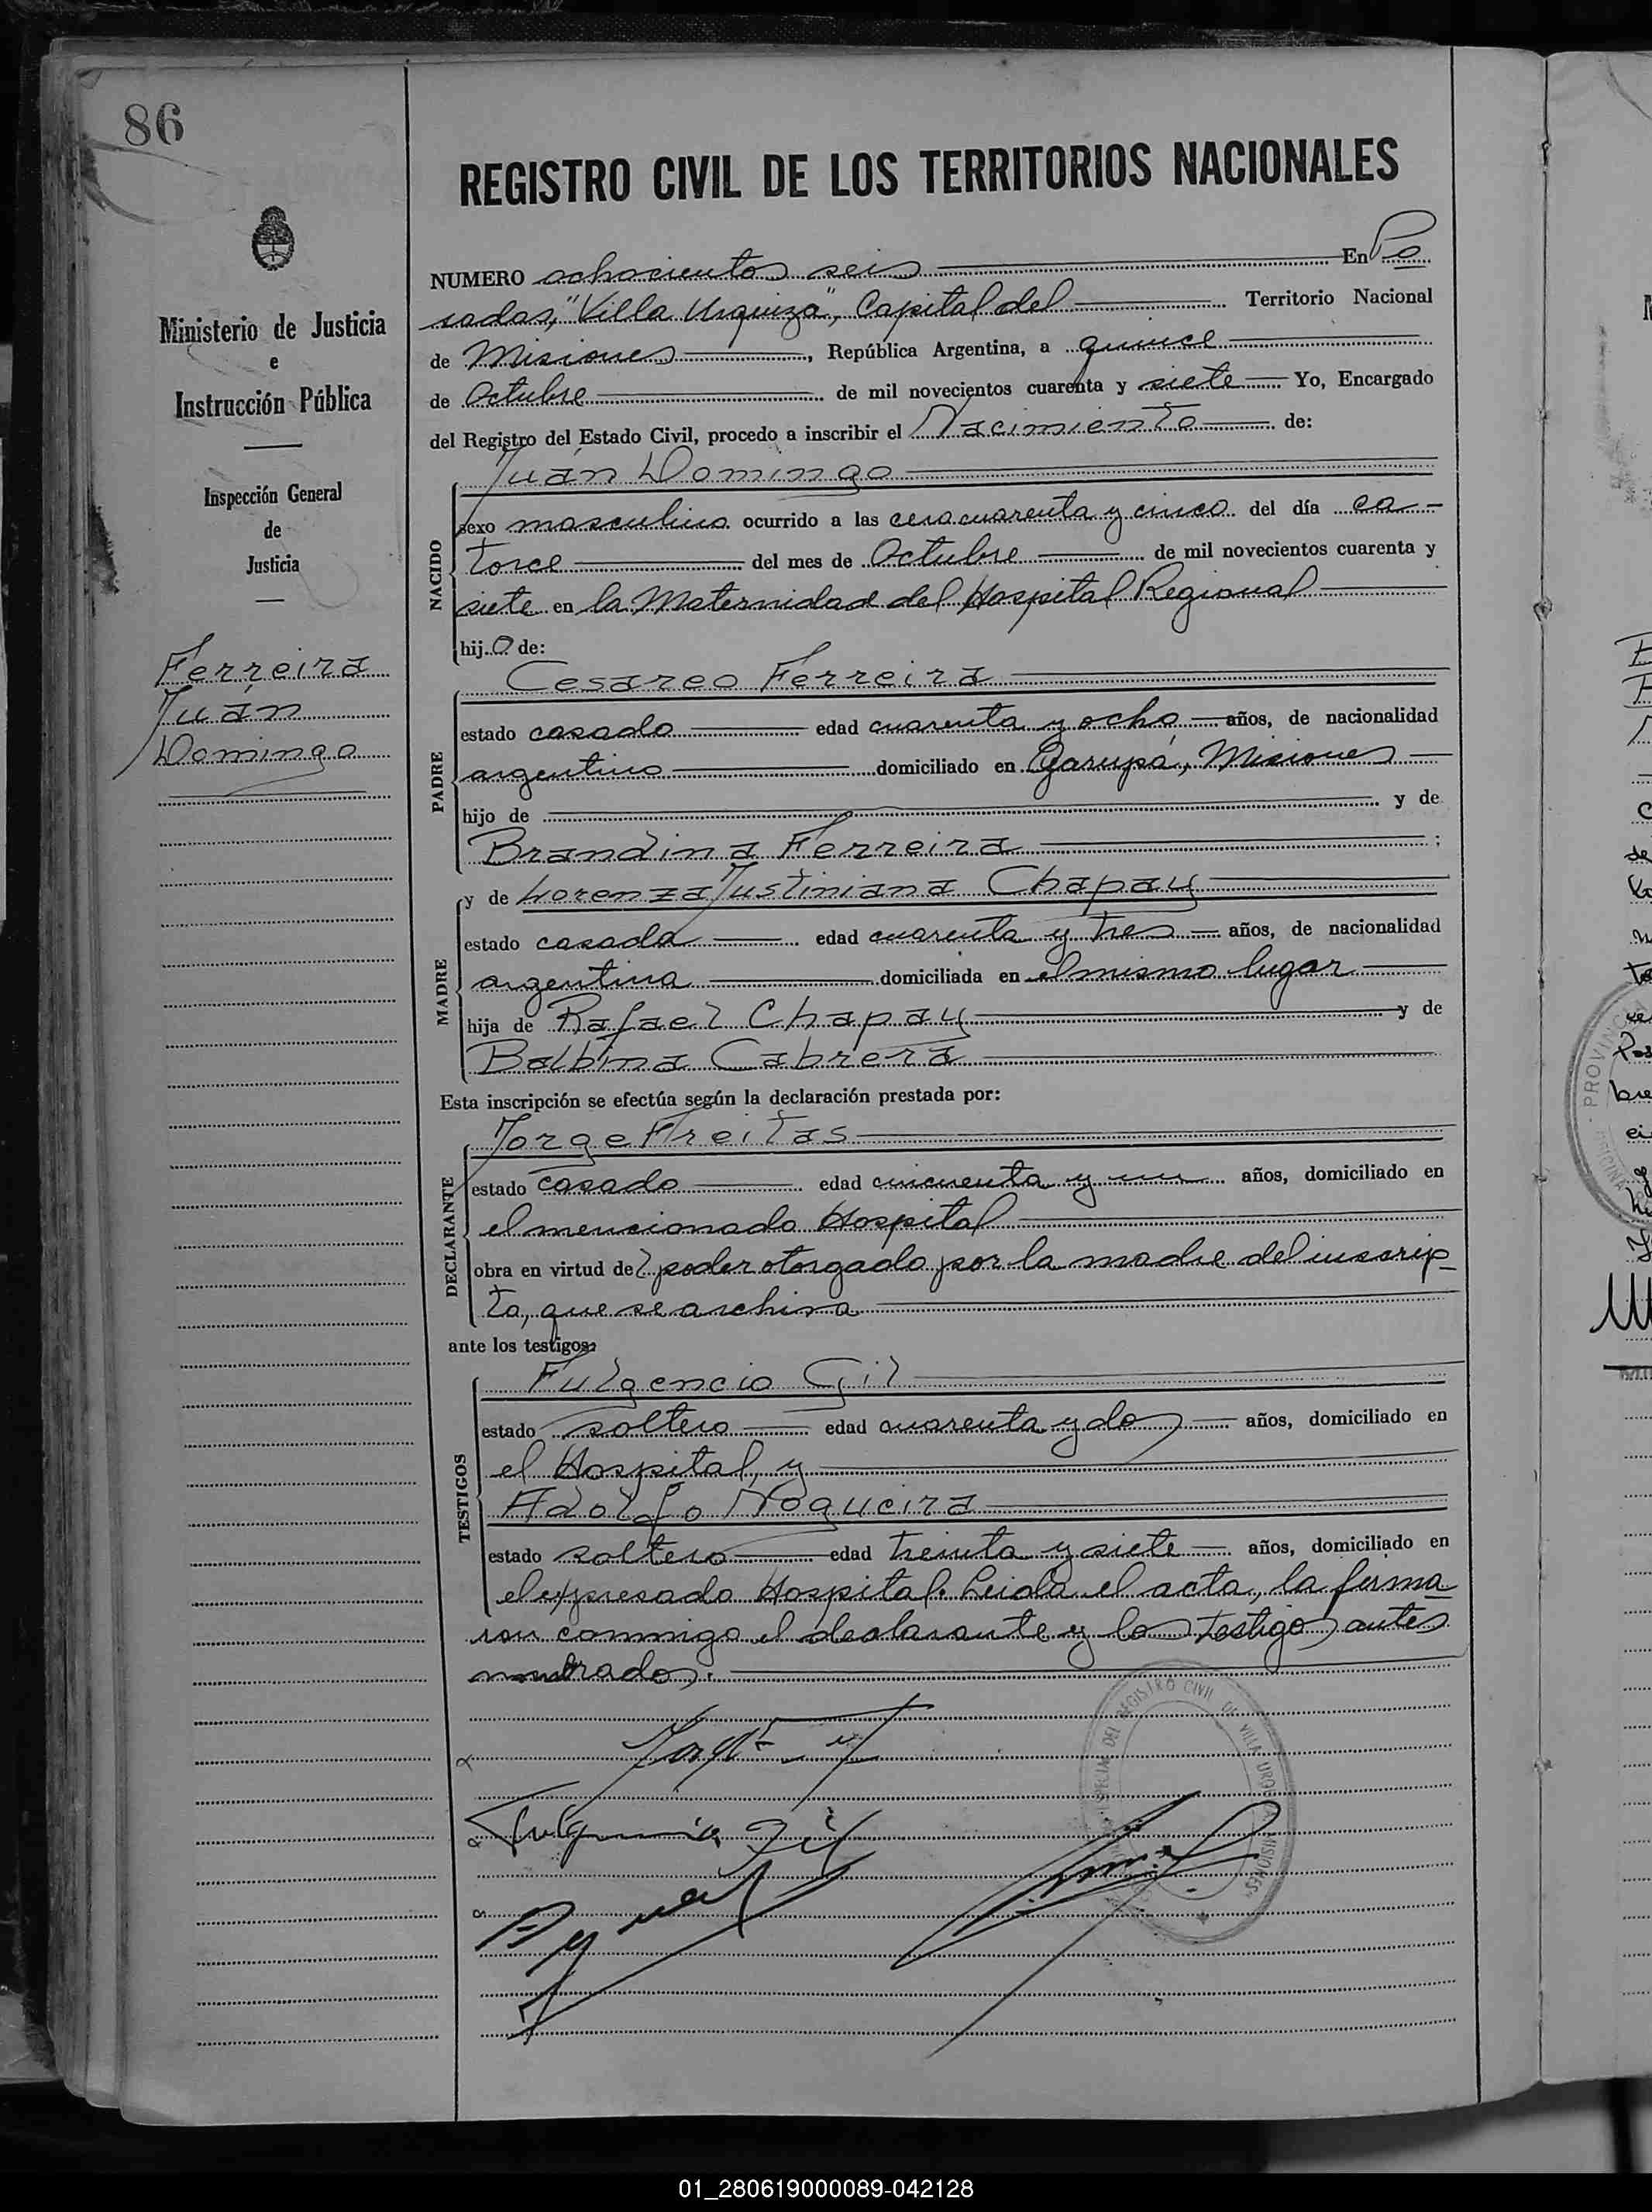 86
REGISTRO CIVIL DE LOS TERRITORIOS NACIONALES
Ministerio de Justicia
e
Instrucción Pública
Inspección General
de
Justicia
Ferreira
Juan
Domingo
NUMERO ochocientos seis En Po
sadas, "Villa Urquiza", Capital del Territorio Nacional
de Misiones, República Argentina, a quince
de Octubre de mil novecientos cuarenta y siete Yo, Encargado
del Registro del Estado Civil, procedo a inscribir el Nacimiento de:
NACIDO
Juan Domingo
sexo masculino ocurrido a las cero cuarenta y cinco del día ca-
torce del mes de Octubre de mil novecientos cuarenta y
siete en la Maternidad del Hospital Regional
hijo de:
PADRE
Cesareo Ferreira
estado casado edad cuarenta y ocho años, de nacionalidad
argentino domiciliado en Garupá, Misiones
hijo de y de
Brandina Ferreira ;
MADRE
y de Lorenza Justiniana Chapay
estado casada edad cuarenta y tres años, de nacionalidad
argentina domiciliada en el mismo lugar
hija de Rafael Chapay y de
Balbina Cabrera
Esta inscripción se efectúa según la declaración prestada por:
DECLARANTE
Jorge Freitas
estado casado edad cincuenta y un años, domiciliado en
el mencionado Hospital
obra en virtud del poder otorgado por la madre del inscrip-
to, que se archiva
ante los testigos:
TESTIGOS
Fulgencio Gil
estado soltero edad cuarenta y dos años, domiciliado en
el Hospital, y
Adolfo Nogueira
estado soltero edad treinta y siete años, domiciliado en
el expresado Hospital. Leida el acta, la firma
ron conmigo el declarante y los testigos antes
nombrados.
Fulgencio Gil
REGISTRO CIVIL DE VILLA URQUIZA MISIONES
PROVINCIA
01_280619000089-042128